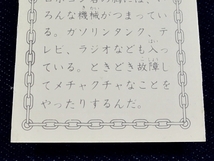 ろんな機械がつまってい
る。ガソリンタンク、テ
レビ、ラジオなども入っ
ている。ときどき故障し
てメチャクチャなことを
やったりするんだ。